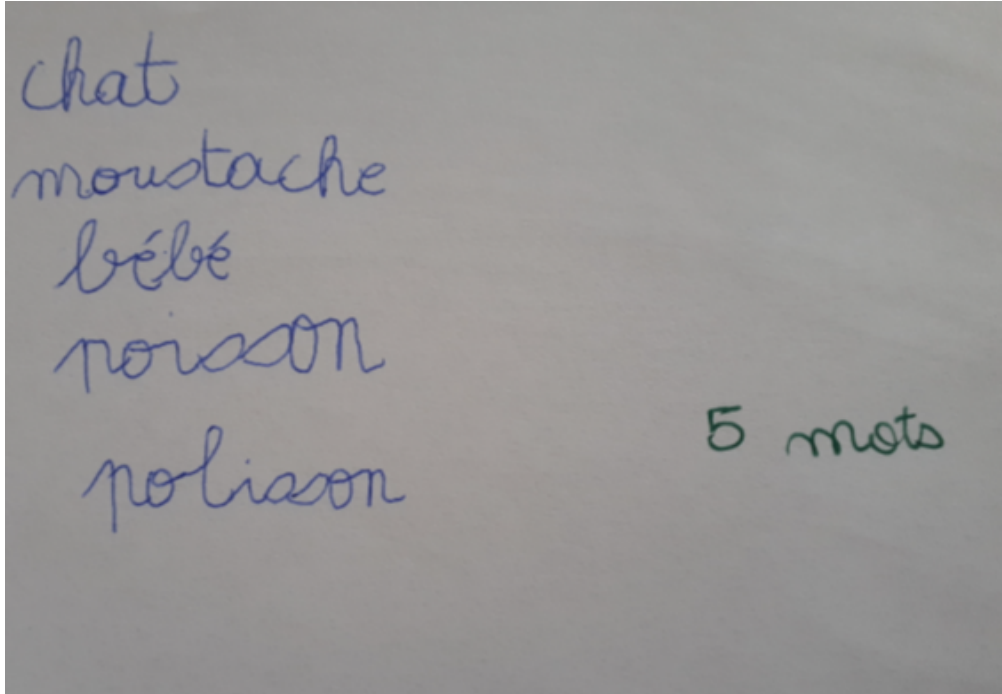 chat
moustache
bébé
poisson
polisson
5 mots